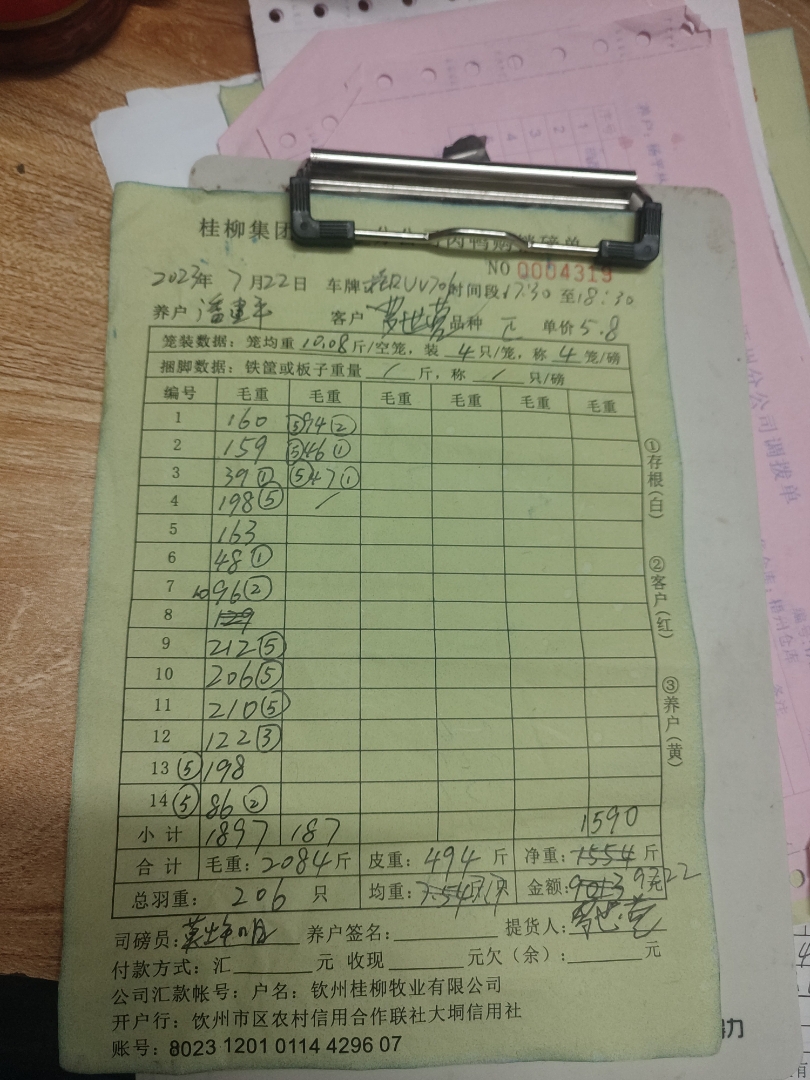 桂柳集团 肉鸭购销磅单
NO 0004319
2023年 7月22日 车牌: UV706 时间段17:30 至18:30
养户 潘建平 客户 罗世营 品种 单价 5.8
笼装数据: 笼均重 10.08 斤/空笼, 装 4 只/笼, 称 4 笼/磅
捆脚数据: 铁筐或板子重量 / 斤, 称 / 只/磅
编号 毛重 毛重 毛重 毛重 毛重 毛重
1 160 ⑤94②
2 159 ⑤46①
3 39① ⑤47①
4 198⑤ /
5 163
6 48①
7 96②
8 129
9 212⑤
10 206⑤
11 210⑤
12 122③
13 ⑤ 198
14 ⑤ 86②
小计 1897 187 1590
合计 毛重: 2084 斤 皮重: 494 斤 净重: 1554 斤
总羽重: 206 只 均重: 7.54斤/只 金额: 9013 9222元
司磅员: 养户签名: 提货人: 罗世营
付款方式: 汇 元 收现 元欠(余): 元
公司汇款帐号: 户名: 钦州桂柳牧业有限公司
开户行: 饮州市区农村信用合作联社大垌信用社
账号: 8023 1201 0114 4296 07
①存根(白)
②客户(红)
③养户(黄)
分公司调拨单